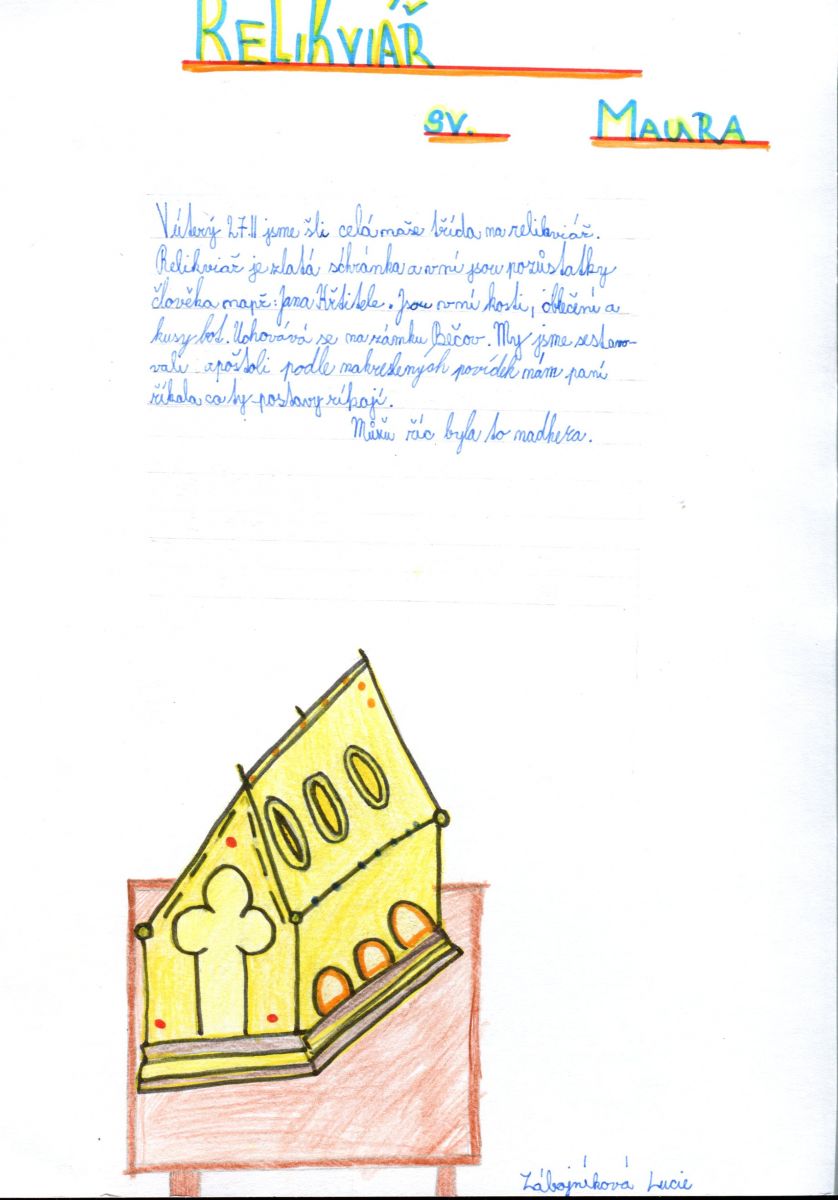 RELIKVIÁŘ
SV. MAURA
V úterý 27.11 jsme šli celá naše třída na relikviář.
Relikviář je zlatá schránka a v ní jsou pozůstatky
člověka např: Jana Křtitele. Jsou v ní kosti, oblečení a
kusy bot. Uchovává se na zámku Bečov. My jsme sestavo-
vali apoštoli podle nakreslených povídek nám paní
říkala co ty postavy říkají.
Můžu říc byla to nadhera.
Zábojníková Lucie